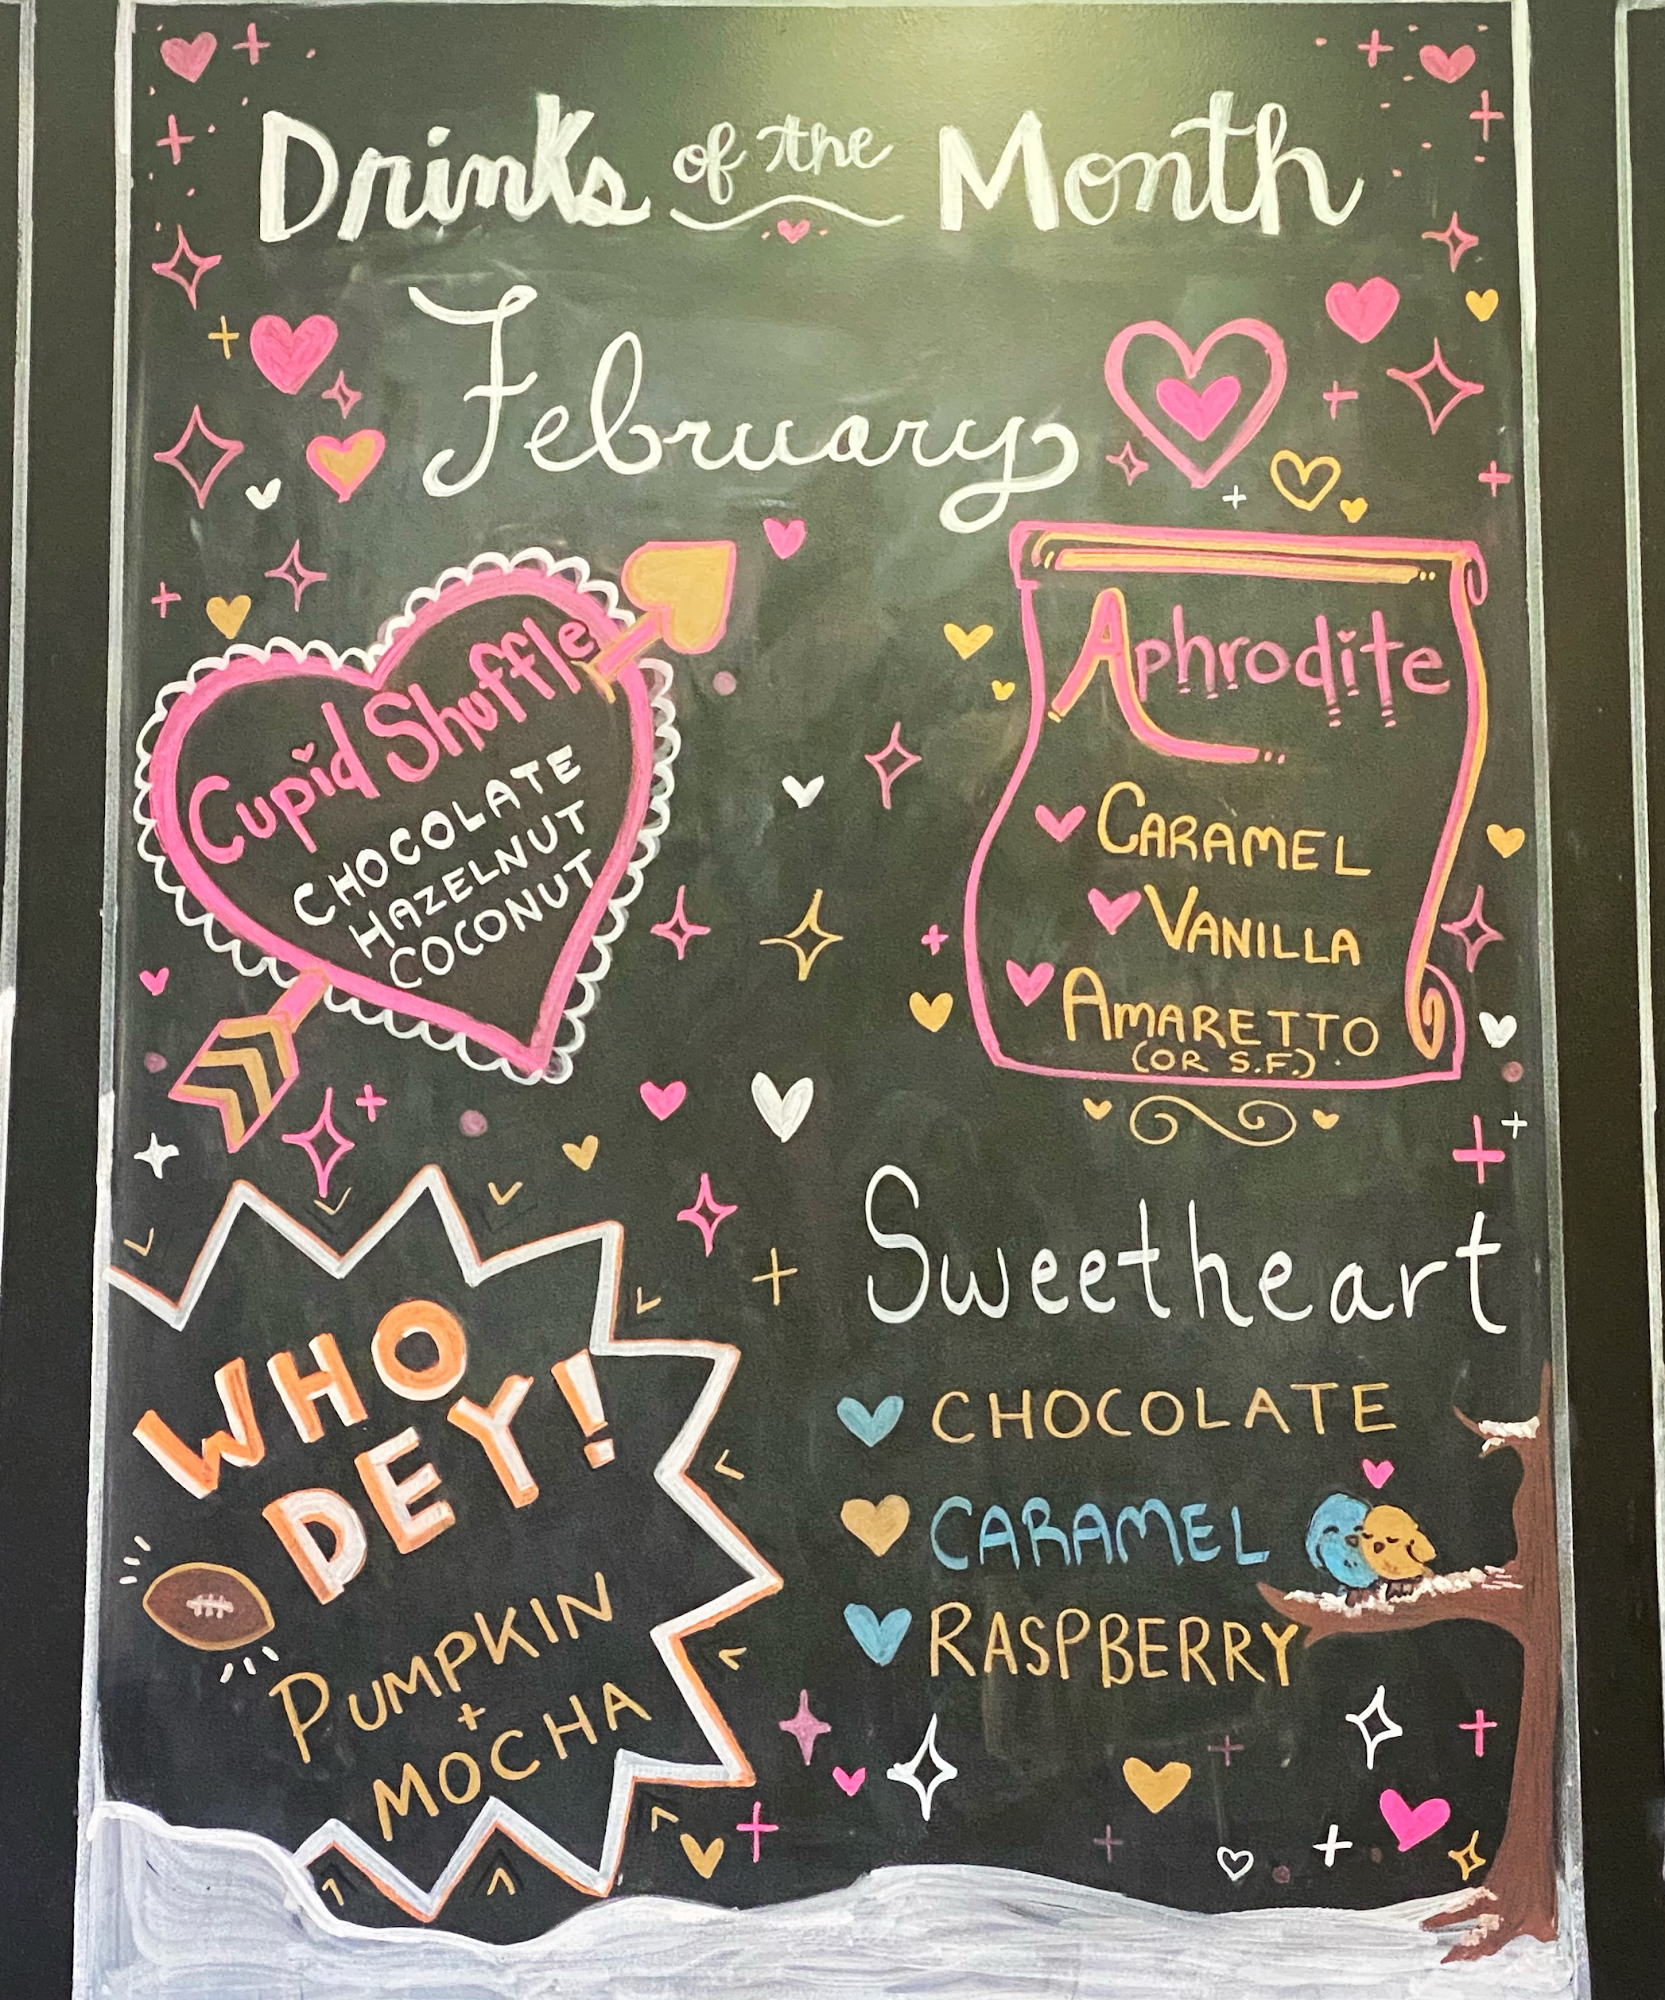 Drinks of the Month
February
Cupid Shuffle
CHOCOLATE
HAZELNUT
COCONUT
Aphrodite
CARAMEL
VANILLA
AMARETTO
(OR S.F.)
WHO
DEY!
PUMPKIN
+
MOCHA
Sweetheart
CHOCOLATE
CARAMEL
RASPBERRY